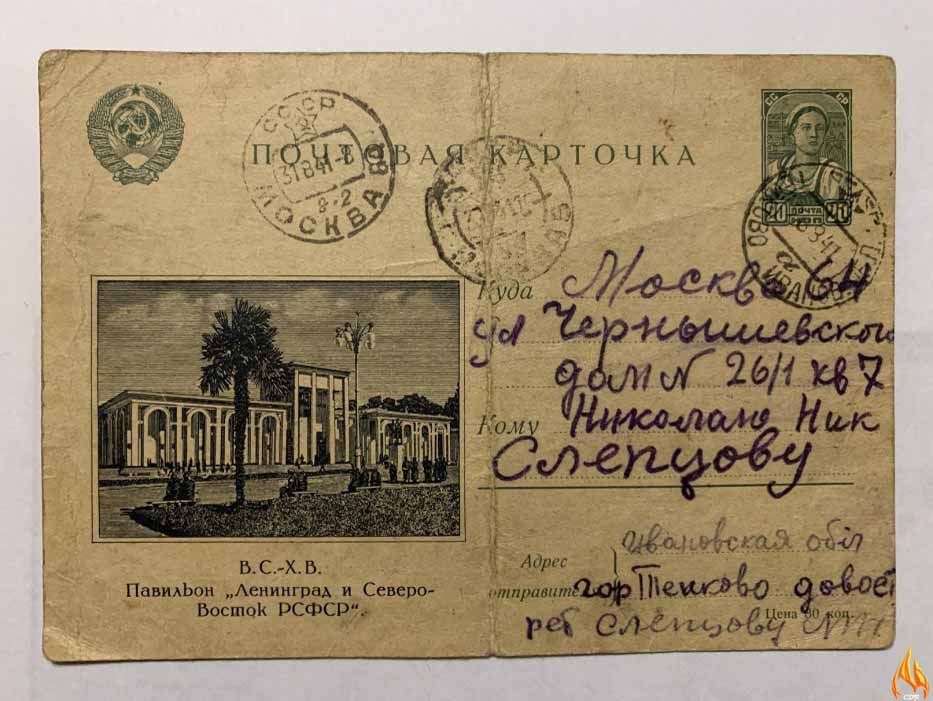 ПОЧТОВАЯ КАРТОЧКА
СССР
31.8.41-8
8-2
МОСКВА
СС СР
20 ПОЧТА 20
Куда Москва 64
ул Чернышевского
дом N 26/1 кв 7
Кому Николаю Ник
Слепцову
В.С.-Х.В.
Павильон „Ленинград и Северо-
Восток РСФСР“.
Адрес Ивановская обл
отправителя гор Тейково довост
Цена 30 коп.
реб Слепцову